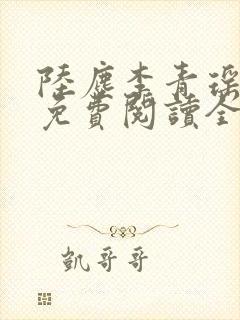 陸塵李青瑤
免費閱讀全
凱哥哥